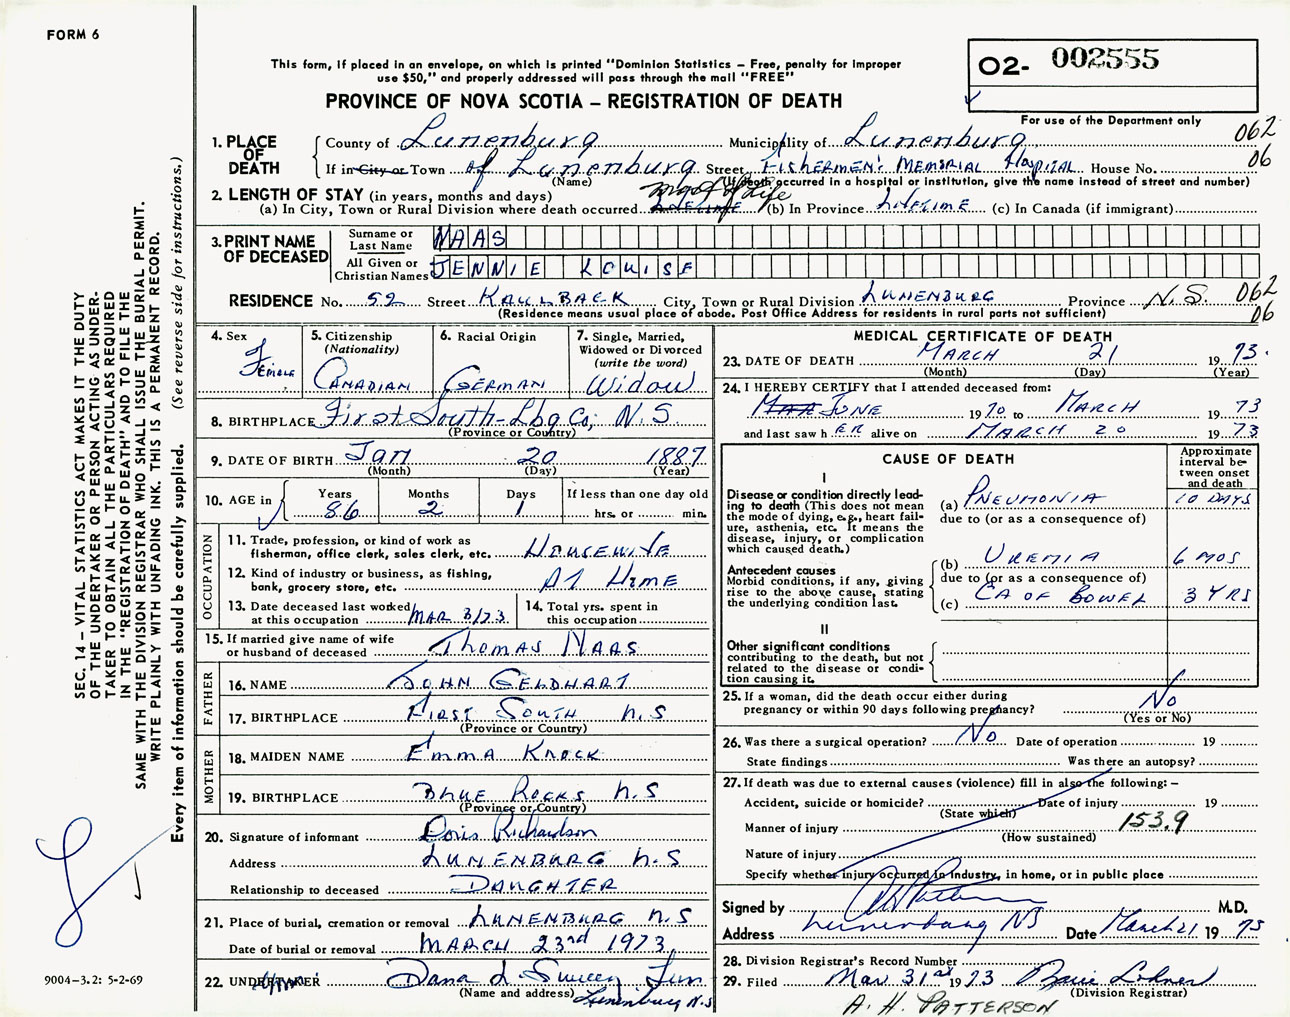 FORM 6
This form, if placed in an envelope, on which is printed "Dominion Statistics – Free, penalty for improper
use $50," and properly addressed will pass through the mail "FREE"
PROVINCE OF NOVA SCOTIA – REGISTRATION OF DEATH
02- 002555
For use of the Department only
062
06
1. PLACE OF DEATH
County of Lunenburg Municipality of Lunenburg
If in City or Town of Lunenburg Street Fishermen's Memorial Hospital House No.
(Name) (If death occurred in a hospital or institution, give the name instead of street and number)
2. LENGTH OF STAY (in years, months and days)
(a) In City, Town or Rural Division where death occurred most of life (b) In Province LIFETIME (c) In Canada (if immigrant)
3. PRINT NAME OF DECEASED
Surname or Last Name NAAS
All Given or Christian Names JENNIE LOUISE
RESIDENCE No. 52 Street KAULBACK City, Town or Rural Division LUNENBURG Province N.S. 062
(Residence means usual place of abode. Post Office Address for residents in rural parts not sufficient) 06
4. Sex Female
5. Citizenship (Nationality) CANADIAN
6. Racial Origin GERMAN
7. Single, Married, Widowed or Divorced (write the word) Widow
8. BIRTHPLACE First South-Lbg Co, N.S.
(Province or Country)
9. DATE OF BIRTH Jan 20 1887
(Month) (Day) (Year)
10. AGE in Years 86 Months 2 Days 1 If less than one day old hrs. or min.
OCCUPATION
11. Trade, profession, or kind of work as
fisherman, office clerk, sales clerk, etc. HOUSEWIFE
12. Kind of industry or business, as fishing,
bank, grocery store, etc. AT HOME
13. Date deceased last worked
at this occupation MAR 3/73
14. Total yrs. spent in
this occupation
15. If married give name of wife
or husband of deceased THOMAS NAAS
FATHER
16. NAME JOHN GELDHART
17. BIRTHPLACE FIRST SOUTH N.S
(Province or Country)
MOTHER
18. MAIDEN NAME EMMA KNOCK
19. BIRTHPLACE BLUE ROCKS N.S
(Province or Country)
20. Signature of informant Doris Richardson
Address LUNENBURG N.S
Relationship to deceased DAUGHTER
21. Place of burial, cremation or removal LUNENBURG N.S
Date of burial or removal MARCH 23rd 1973
22. UNDERTAKER Dana L Sweeny Fun
(Name and address) Lunenburg N.S
MEDICAL CERTIFICATE OF DEATH
23. DATE OF DEATH MARCH 21 1973.
(Month) (Day) (Year)
24. I HEREBY CERTIFY that I attended deceased from:
JUNE 1970 to MARCH 1973
and last saw h ER alive on MARCH 20 1973
CAUSE OF DEATH
Approximate interval between onset and death
I
Disease or condition directly leading to death (This does not mean the mode of dying, e.g., heart failure, asthenia, etc. It means the disease, injury, or complication which caused death.)
(a) PNEUMONIA 10 DAYS
due to (or as a consequence of)
Antecedent causes
Morbid conditions, if any, giving rise to the above cause, stating the underlying condition last.
(b) UREMIA 6 MOS
due to (or as a consequence of)
(c) CA OF BOWEL 3 YRS
II
Other significant conditions
contributing to the death, but not related to the disease or condition causing it.
25. If a woman, did the death occur either during
pregnancy or within 90 days following pregnancy? No
(Yes or No)
26. Was there a surgical operation? No Date of operation 19
State findings Was there an autopsy?
27. If death was due to external causes (violence) fill in also the following: –
Accident, suicide or homicide? Date of injury 19
(State which)
Manner of injury 153.9
(How sustained)
Nature of injury
Specify whether injury occurred in industry, in home, or in public place
Signed by AH Patterson M.D.
Address Lunenburg NS Date March 21 1973
28. Division Registrar's Record Number
29. Filed Mar 31st 1973
(Division Registrar)
A. H. PATTERSON
SEC. 14 – VITAL STATISTICS ACT MAKES IT THE DUTY
OF THE UNDERTAKER OR PERSON ACTING AS UNDER-
TAKER TO OBTAIN ALL THE PARTICULARS REQUIRED
IN THE "REGISTRATION OF DEATH" AND TO FILE THE
SAME WITH THE DIVISION REGISTRAR WHO SHALL ISSUE THE BURIAL PERMIT.
WRITE PLAINLY WITH UNFADING INK. THIS IS A PERMANENT RECORD.
Every item of information should be carefully supplied. (See reverse side for instructions.)
9004–3.2: 5-2-69